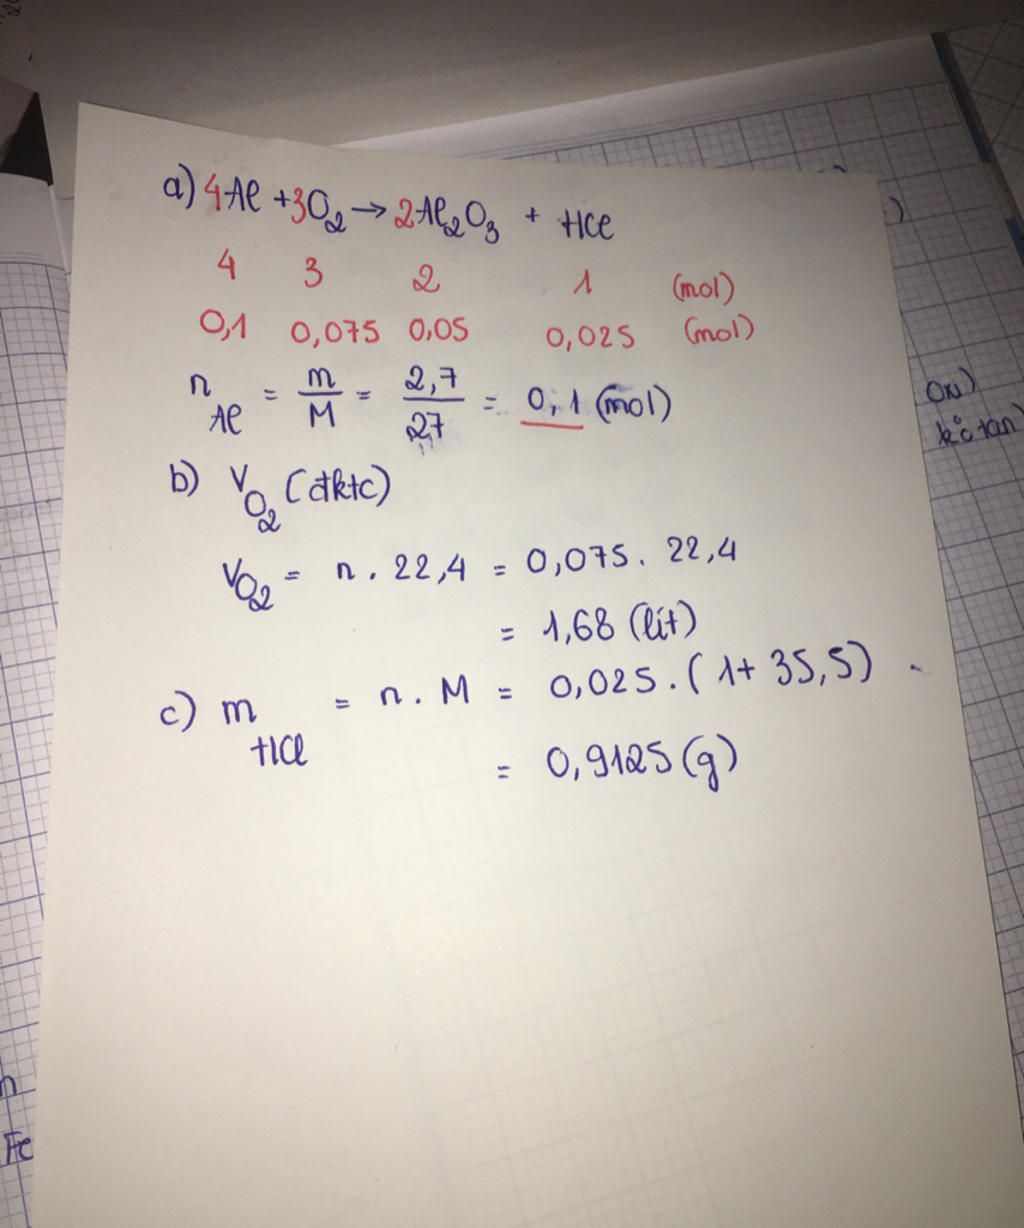 a) 4Al + 3O2 → 2Al2O3 + HCl
4 3 2 1 (mol)
0,1 0,075 0,05 0,025 (mol)
nAl = m/M = 2,7/27 = 0,1 (mol)
b) VO2 (đktc)
VO2 = n . 22,4 = 0,075 . 22,4
= 1,68 (lít)
c) mHCl = n . M = 0,025 . (1 + 35,5)
= 0,9125 (g)
Fe